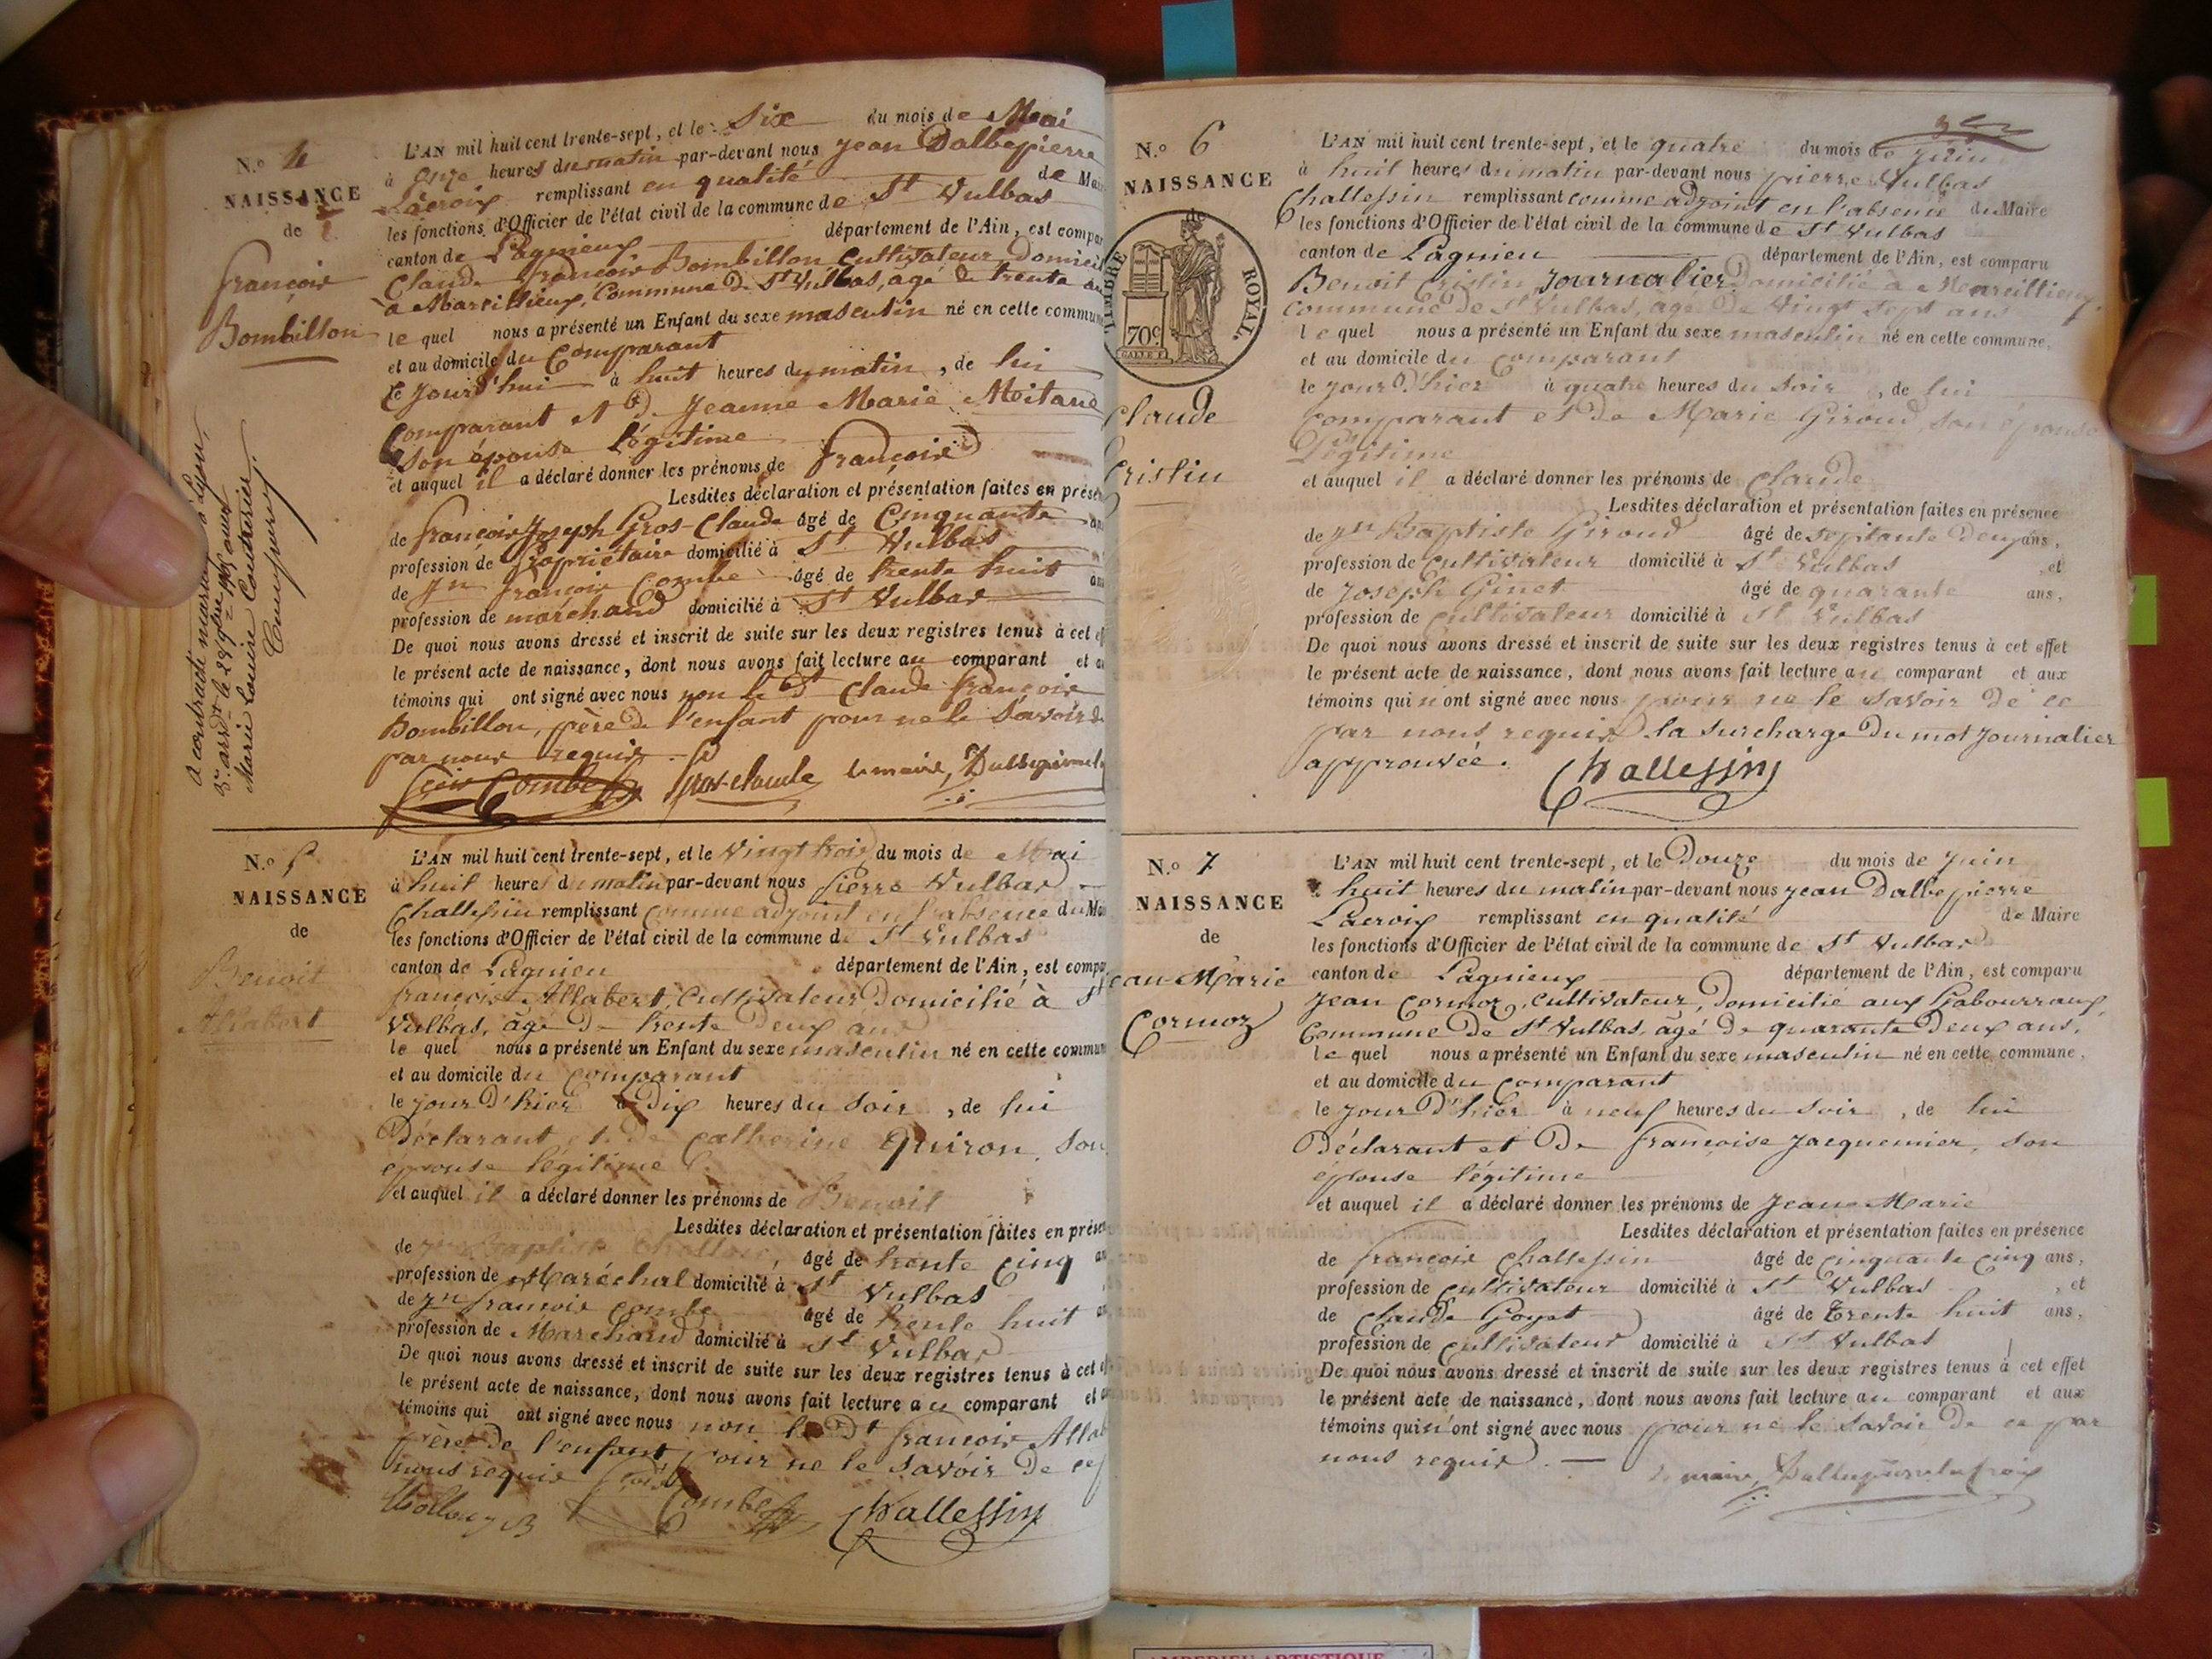 N.º 4
NAISSANCE
de
François
Bombillon
L'AN mil huit cent trente-sept, et le Six du mois de Mai
à onze heures du matin par-devant nous Jean Dalbepierre
Lacroix remplissant en qualité de Mai
les fonctions d'Officier de l'état civil de la commune de St Vulbas
canton de Lagnieux département de l'Ain, est compar
Claude françois Bombillon Cultivateur Domicil
à Marcillieux, Commune de St Vulbas, agé de trente
le quel nous a présenté un Enfant du sexe masculin né en cette commune
et au domicile du Comparant
le jourd'hui à huit heures du matin, de lui
Comparant et de Jeanne Marie Moitane
Son épouse légitime
et auquel il a déclaré donner les prénoms de françois
Lesdites déclaration et présentation faites en présen
de françois Joseph Gros-Claude âgé de Cinquante an
profession de Propriétaire domicilié à St Vulbas
de jn françois Combe âgé de trente huit an
profession de marchand domicilié à St Vulbas
De quoi nous avons dressé et inscrit de suite sur les deux registres tenus à cet ef
le présent acte de naissance, dont nous avons fait lecture au comparant et a
témoins qui ont signé avec nous non le dt Claude françois
Bombillon, père de l'enfant pour ne le Savoir de
par nous requis
Combe Gros-claude le maire, Dalbepierre
a contracté mariage à Lyon,
3me arrdt le 29
Marie Louise Coudrerier
N.º 5
NAISSANCE
de
Benoit
Allabert
L'AN mil huit cent trente-sept, et le Vingt trois du mois de Mai
à huit heures du matin par-devant nous Pierre Vulbas
Challessin remplissant comme adjoint en l'absence du Ma
les fonctions d'Officier de l'état civil de la commune de St Vulbas
canton de Lagnieu département de l'Ain, est compa
françois Allabert, Cultivateur Domicilié à St
Vulbas, âgé De trente Deux ans
le quel nous a présenté un Enfant du sexe masculin né en cette commun
et au domicile du comparant
le jour D'hier à Dix heures du soir, de lui
Déclarant et de Catherine Quiron, Son
épouse légitime
et auquel il a déclaré donner les prénoms de Benoit
Lesdites déclaration et présentation faites en prése
de jn Baptiste âgé de trente cinq an
profession de Maréchal domicilié à St Vulbas
de jn françois Combe âgé de trente huit an
profession de Marchand domicilié à St Vulbas
De quoi nous avons dressé et inscrit de suite sur les deux registres tenus à cet ef
le présent acte de naissance, dont nous avons fait lecture au comparant et a
témoins qui ont signé avec nous non le Dt françois Alla
père de l'enfant pour ne le Savoir De ce
nous requis
Combe Challessin
N.º 6
NAISSANCE
de
TIMBRE ROYAL
70c
Claude
Cristin
L'AN mil huit cent trente-sept, et le quatre du mois de juin
à huit heures du matin par-devant nous pierre Vulbas
Challessin remplissant comme adjoint en l'absence du Maire
les fonctions d'Officier de l'état civil de la commune de St Vulbas
canton de Lagnieu département de l'Ain, est comparu
Benoit Cristin Journalier Domicilié à Marcillieux,
Commune De St Vulbas, agé De Vingt Sept ans
le quel nous a présenté un Enfant du sexe masculin né en cette commune,
et au domicile du comparant
le jour D'hier à quatre heures du soir, de lui
comparant et De Marie Giroud, son épouse
Légitime
et auquel il a déclaré donner les prénoms de Claude
Lesdites déclaration et présentation faites en présence
de jn Baptiste Giroud âgé de septante Deux ans,
profession de cultivateur domicilié à St Vulbas, et
de Joseph Ginet âgé de quarante ans,
profession de cultivateur domicilié à St Vulbas
De quoi nous avons dressé et inscrit de suite sur les deux registres tenus à cet effet
le présent acte de naissance, dont nous avons fait lecture au comparant et aux
témoins qui n'ont signé avec nous pour ne le savoir de ce
par nous requis la surcharge Du mot journalier
approuvée. Challessin
N.º 7
NAISSANCE
de
Jean-Marie
Cormoz
L'AN mil huit cent trente-sept, et le Douze du mois de juin
à huit heures du matin par-devant nous jean Dalbepierre
Lacroix remplissant en qualité de Maire
les fonctions d'Officier de l'état civil de la commune de St Vulbas
canton de Lagnieux département de l'Ain, est comparu
jean Cormoz, cultivateur, Domicilié aux Gabourraux,
Commune De St Vulbas, âgé De quarante Deux ans,
le quel nous a présenté un Enfant du sexe masculin né en cette commune,
et au domicile du comparant
le jour D'hier à neuf heures du soir, de lui
Déclarant et De françoise Jacquemier, Son
épouse légitime
et auquel il a déclaré donner les prénoms de Jean Marie
Lesdites déclaration et présentation faites en présence
de françois Challessin âgé de cinquante cinq ans,
profession de cultivateur domicilié à St Vulbas, et
de Claude Goyet âgé de trente huit ans,
profession de cultivateur domicilié à St Vulbas
De quoi nous avons dressé et inscrit de suite sur les deux registres tenus à cet effet
le présent acte de naissance, dont nous avons fait lecture au comparant et aux
témoins qui n'ont signé avec nous pour ne le savoir De ce par
nous requis.
le maire, Dalbepierre lacroix
AMBERIEU ARTISTIQUE